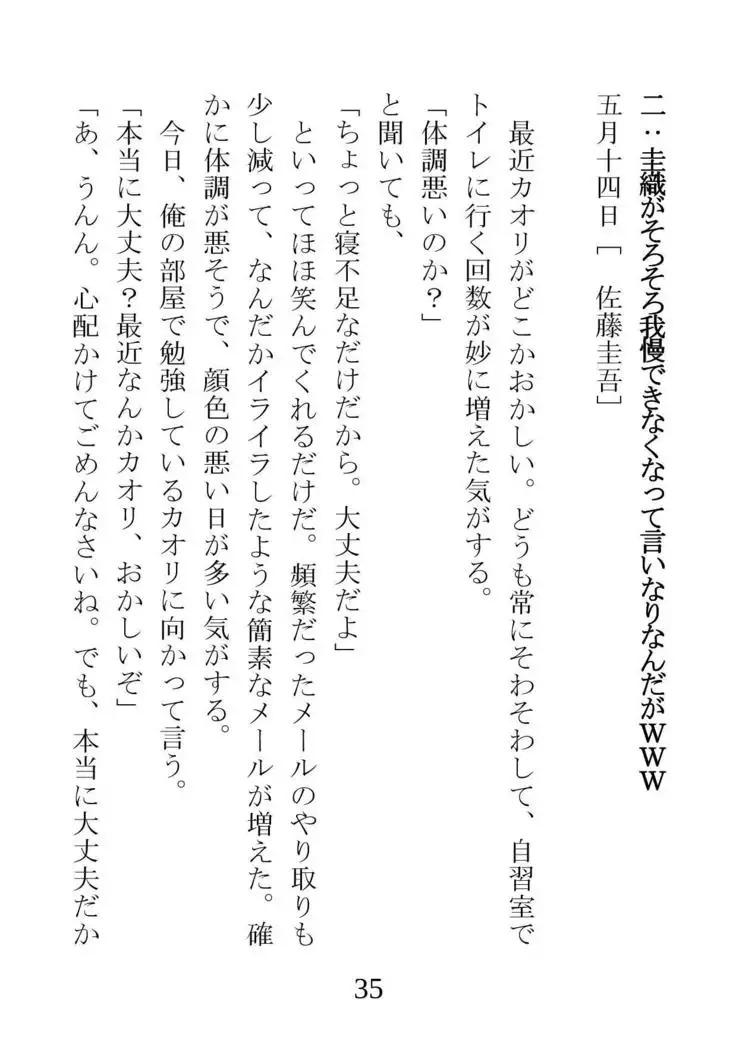 二：圭織がそろそろ我慢できなくなって言いなりなんだがｗｗｗ
五月十四日［　佐藤圭吾］
　最近カオリがどこかおかしい。どうも常にそわそわして、自習室で
トイレに行く回数が妙に増えた気がする。
「体調悪いのか？」
と聞いても、
「ちょっと寝不足なだけだから。大丈夫だよ」
　といってほほ笑んでくれるだけだ。頻繁だったメールのやり取りも
少し減って、なんだかイライラしたような簡素なメールが増えた。確
かに体調が悪そうで、顔色の悪い日が多い気がする。
　今日、俺の部屋で勉強しているカオリに向かって言う。
「本当に大丈夫？最近なんかカオリ、おかしいぞ」
「あ、うんん。心配かけてごめんなさいね。でも、本当に大丈夫だか
35